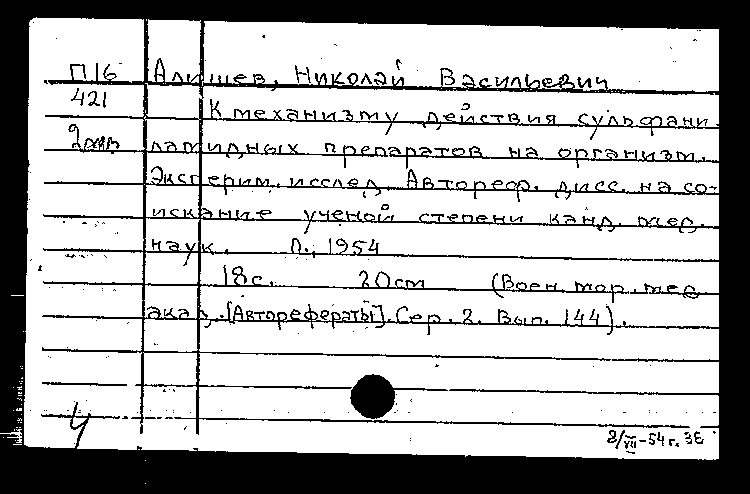 П16 Алишев, Николай Васильевич
421 К механизму действия сульфани-
2 экз ламидных препаратов на организм.
Эксперим. исслед. Автореф. дисс. на со-
искание ученой степени канд. мед.
наук. Л., 1954
18с. 20см (Воен. мор. мед.
акад. [Авторефераты]. Сер. 2. Вып. 144).
4
2/VII-54 г. ЗЕ